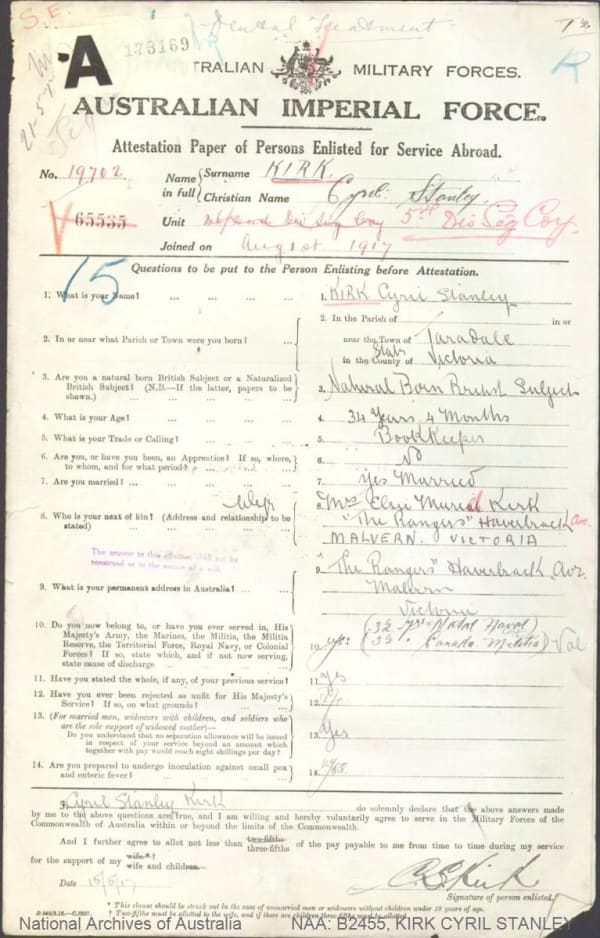 S.E.
Dental Treatment
173169
A
TRALIAN MILITARY FORCES.
21-5-
AUSTRALIAN IMPERIAL FORCE.
Attestation Paper of Persons Enlisted for Service Abroad.
No. 19702
Name in full { Surname KIRK.
Christian Name Cyril Stanley.
65535
Unit 5th Div Sig Coy
Joined on August 1917
15
Questions to be put to the Person Enlisting before Attestation.
1. What is your Name? ... ... ... ... 1. KIRK Cyril Stanley
2. In or near what Parish or Town were you born? ... 2. In the Parish of in or
near the Town of Taradale
State
in the County of Victoria
3. Are you a natural born British Subject or a Naturalized
British Subject? (N.B.—If the latter, papers to be
shown.) ... ... ... 3. Natural Born British Subject
4. What is your Age? ... ... ... ... 4. 34 Years 4 Months
5. What is your Trade or Calling? ... ... ... 5. BookKeeper
6. Are you, or have you been, an Apprentice? If so, where,
to whom, and for what period? ... 6. No
7. Are you married? ... ... ... ... 7. Yes Married
Wife
8. Who is your next of kin? (Address and relationship to be
stated) ... 8. Mrs Elsie Muriel Kirk
"The Rangers" Haverbrack Ave.
MALVERN. VICTORIA
The answer to this question shall not be
construed as in the nature of a will.
9. What is your permanent address in Australia? ... 9. "The Rangers" Haverbrack Ave.
Malvern
Victoria
10. Do you now belong to, or have you ever served in, His
Majesty's Army, the Marines, the Militia, the Militia
Reserve, the Territorial Force, Royal Navy, or Colonial
Forces? If so, state which, and if not now serving,
state cause of discharge ... 10. Yes (3½ yrs Natal Naval)
(3½ " Canada Militia)
11. Have you stated the whole, if any, of your previous service? 11. Yes
12. Have you ever been rejected as unfit for His Majesty's
Service? If so, on what grounds? ... 12. No
13. (For married men, widowers with children, and soldiers who
are the sole support of widowed mother)—
Do you understand that no separation allowance will be issued
in respect of your service beyond an amount which
together with pay would reach eight shillings per day? 13. Yes
14. Are you prepared to undergo inoculation against small pox
and enteric fever? ... 14. Yes.
I, Cyril Stanley Kirk do solemnly declare that the above answers made
by me to the above questions are true, and I am willing and hereby voluntarily agree to serve in the Military Forces of the
Commonwealth of Australia within or beyond the limits of the Commonwealth.
And I further agree to allot not less than two-fifths three-fifths of the pay payable to me from time to time during my service
for the support of my wife.*† wife and children.
Date 15/5/17 C S Kirk
Signature of person enlisted.
* This clause should be struck out in the case of unmarried men or widowers without children under 18 years of age.
† Two-fifths must be allotted to the wife, and if there are children three-fifths must be allotted.
National Archives of Australia NAA: B2455, KIRK CYRIL STANLEY